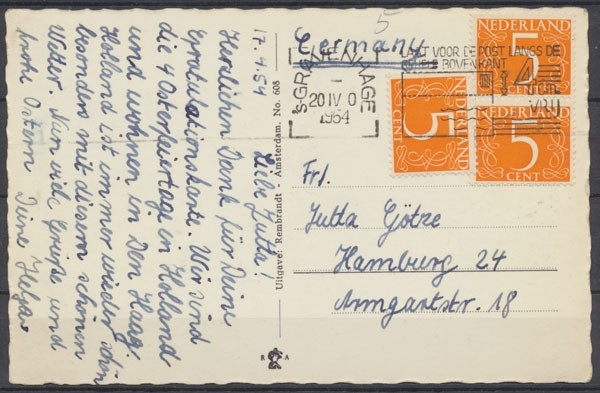 17.4.54 Liebe Jutta!
Herzlichen Dank für Deine
Gratulationskarte. Wir sind
die 4 Osterfeiertage in Holland
und wohnen in Den Haag.
Holland ist immer wieder schön
besonders mit diesem schönen
Wetter. Nun viele Grüße und
frohe Ostern Deine Helga
Uitgave: Rembrandt - Amsterdam. No. 608
R A
5
Germany
'S-GRAVENHAGE
20 IV 0
1954
LAAT VOOR DE POST LANGS DE
BOVENKANT
VRIJ
NEDERLAND
5
CENT
NEDERLAND
5
CENT
NEDERLAND
5
CENT
Frl.
Jutta Götze
Hamburg 24
Armgartstr. 18